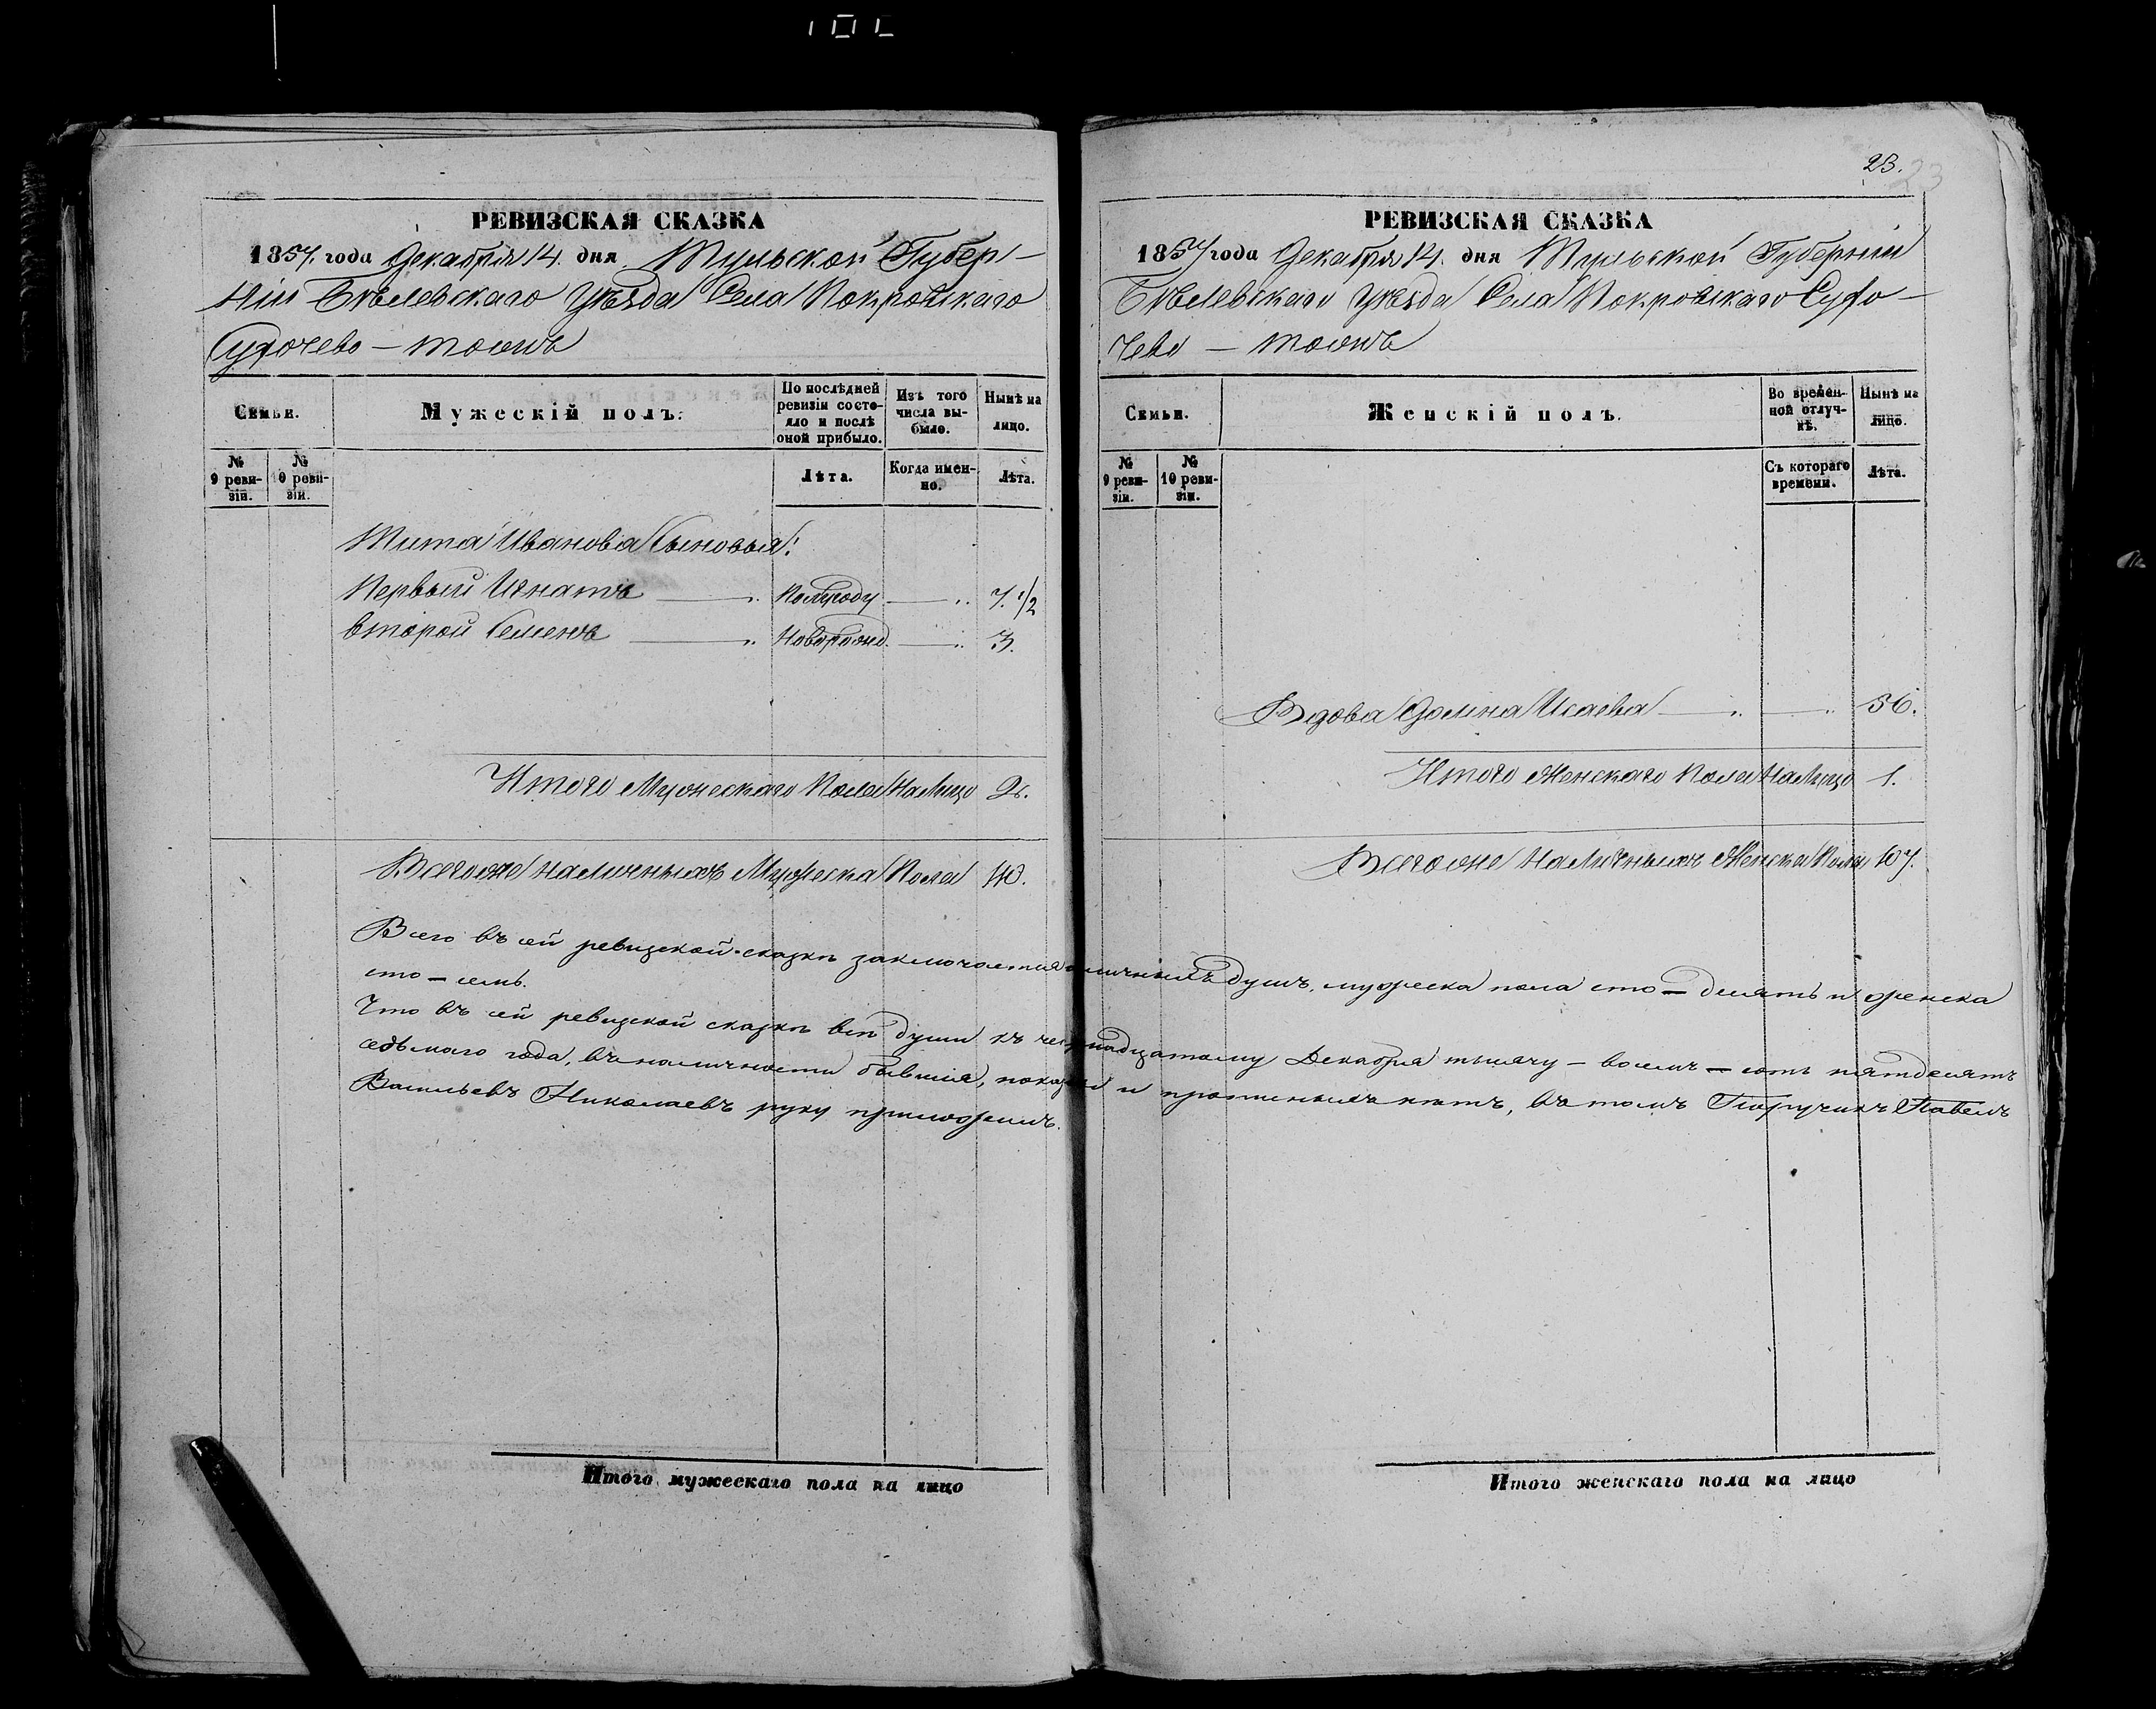 23.
23
РЕВИЗСКАЯ СКАЗКА
1857. года Декабря 14. дня Тульской Губер-
ніи Бѣлевскаго Уѣзда Села Покровскаго
тожъ
Семьи.
Мужескій полъ.
По послѣдней ревизіи состояло и послѣ оной прибыло.
Изъ того числа выбыло.
Нынѣ на лицо.
№ 9 ревизіи.
№ 10 ревизіи.
Лѣта.
Когда именно.
Лѣта.
Тита Иванова Сыновья:
Первый Игнатъ — „ Полугоду — „ 7.1/2
второй Семенъ — „ Новорожд. — „ 3.
Итого Мужескаго Пола На Лицо 2.
Всего же наличныхъ Мужеска Пола 110.
РЕВИЗСКАЯ СКАЗКА
1857 года Декабря 14. дня Тульской Губерніи
Бѣлевскаго Уѣзда Села Покровскаго
— тожъ
Семьи.
Женскій полъ.
Во временной отлучкѣ.
Нынѣ на лицо.
№ 9 ревизіи.
№ 10 ревизіи.
Съ котораго времени.
Лѣта.
Вдова Домна Исаева — „ — „ 56.
Итого Женскаго Пола На Лицо 1.
Всего же Наличныхъ Женска Пола 107.
Всего въ сей ревизской сказкѣ заключается наличныхъ душъ, мужеска пола сто — десять и женска
сто — семь.
Что въ сей ревизской сказкѣ всѣ души къ четырнадцатому Декабря тысячу — восемь — сотъ пятдесятъ
седьмаго года, въ наличности бывшія, показаны и прописныхъ нѣтъ, въ томъ Поручикъ Павелъ
Васильевъ Николаевъ руку приложилъ.
Итого мужескаго пола на лицо
Итого женскаго пола на лицо